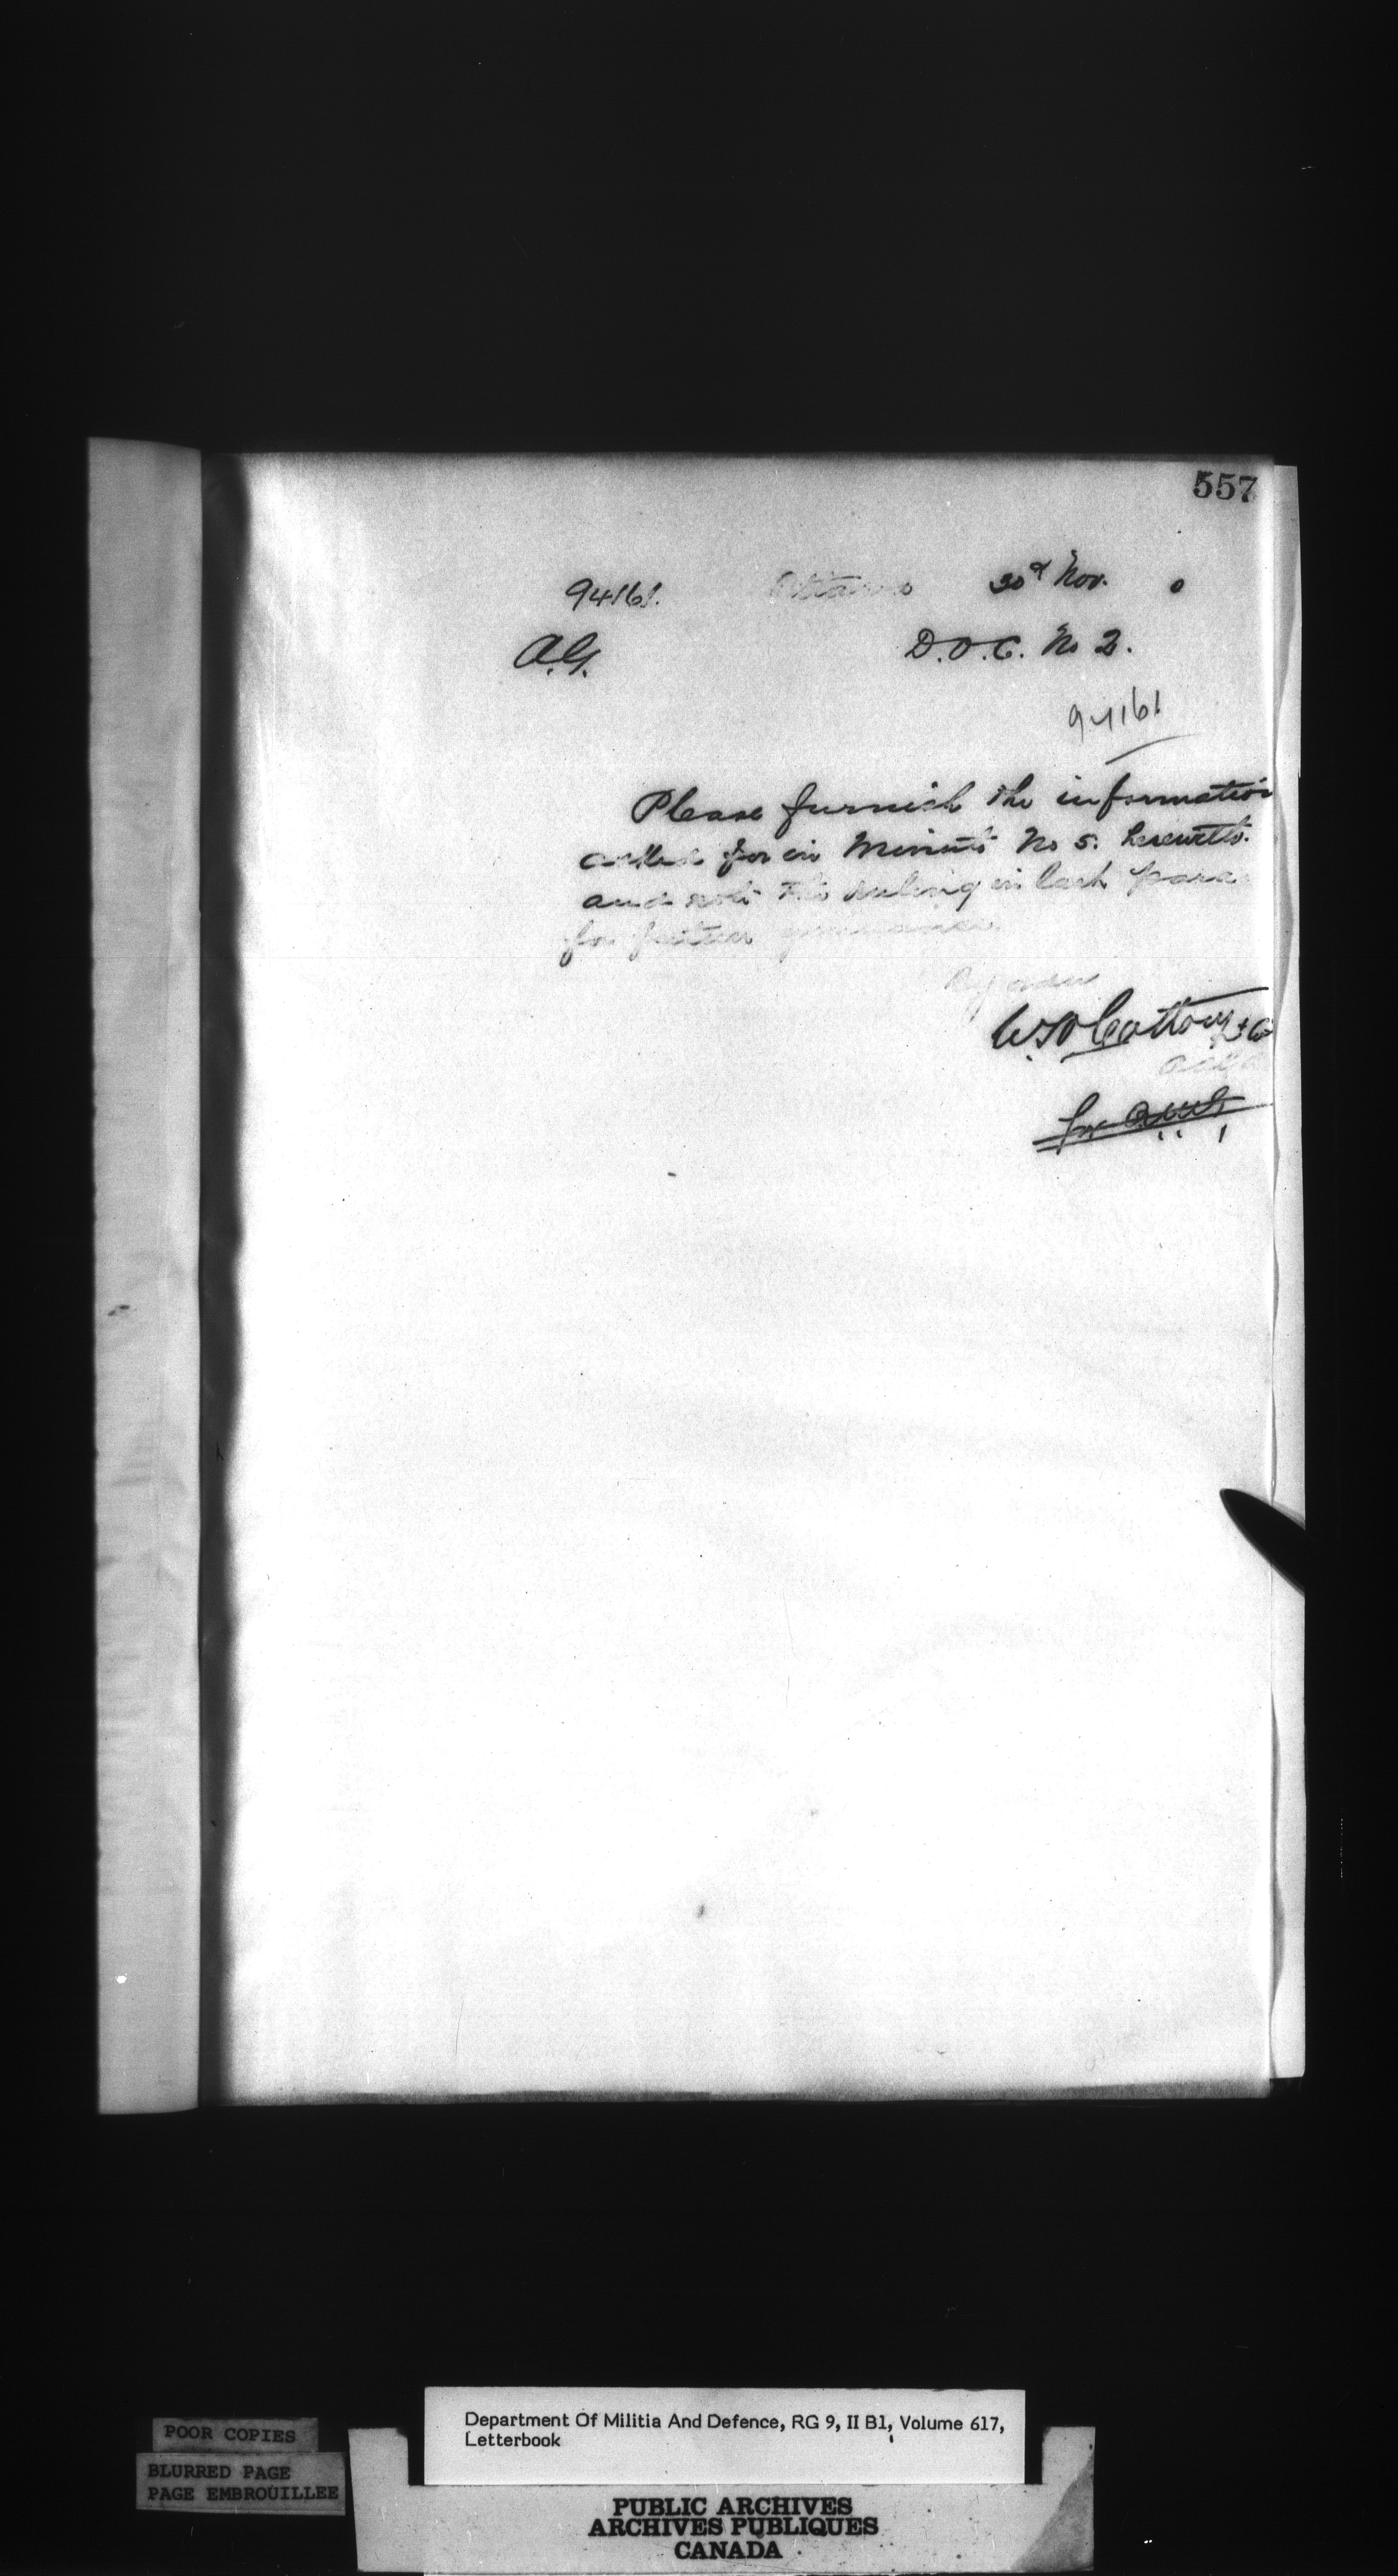 557
94161. Ottawa 30th Nov. 0
A.G. D.O.C. No 2.
94161
Please furnish the information
called for in Minute No 5. herewith.
and note the ruling in last para
for future guidance.
By order
W.H. Cotton Lt Co
for
Department Of Militia And Defence, RG 9, II B1, Volume 617,
Letterbook
POOR COPIES
BLURRED PAGE
PAGE EMBROUILLEE
PUBLIC ARCHIVES
ARCHIVES PUBLIQUES
CANADA